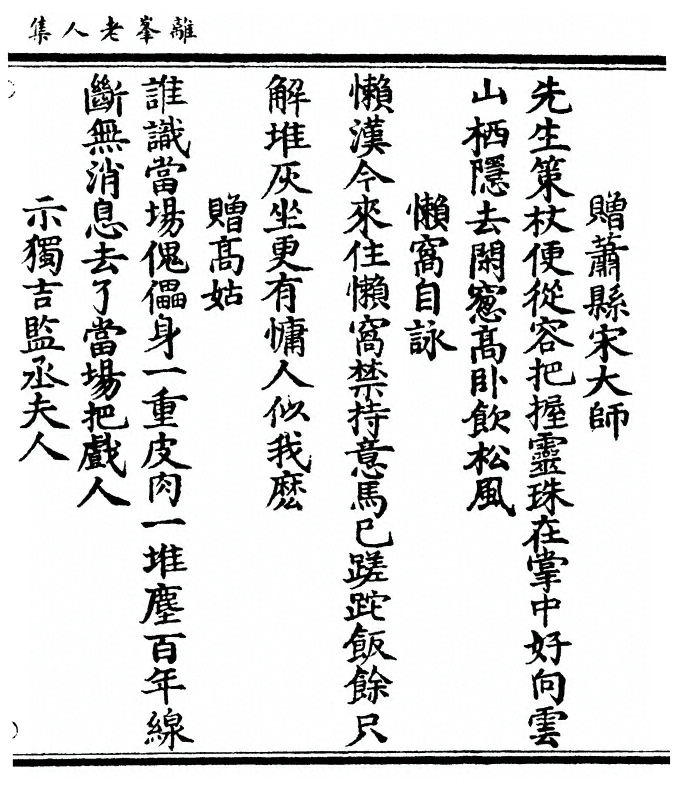 離峯老人集
贈蕭縣宋大師
先生策杖便從容把握靈珠在掌中好向雲
山栖隱去閑窓高卧飲松風
懶窩自詠
懶漢今來住懶窩禁持意馬已蹉跎飯餘只
解堆灰坐更有慵人似我麽
贈高姑
誰識當場傀儡身一重皮肉一堆塵百年線
斷無消息去了當場把戲人
示獨吉監丞夫人